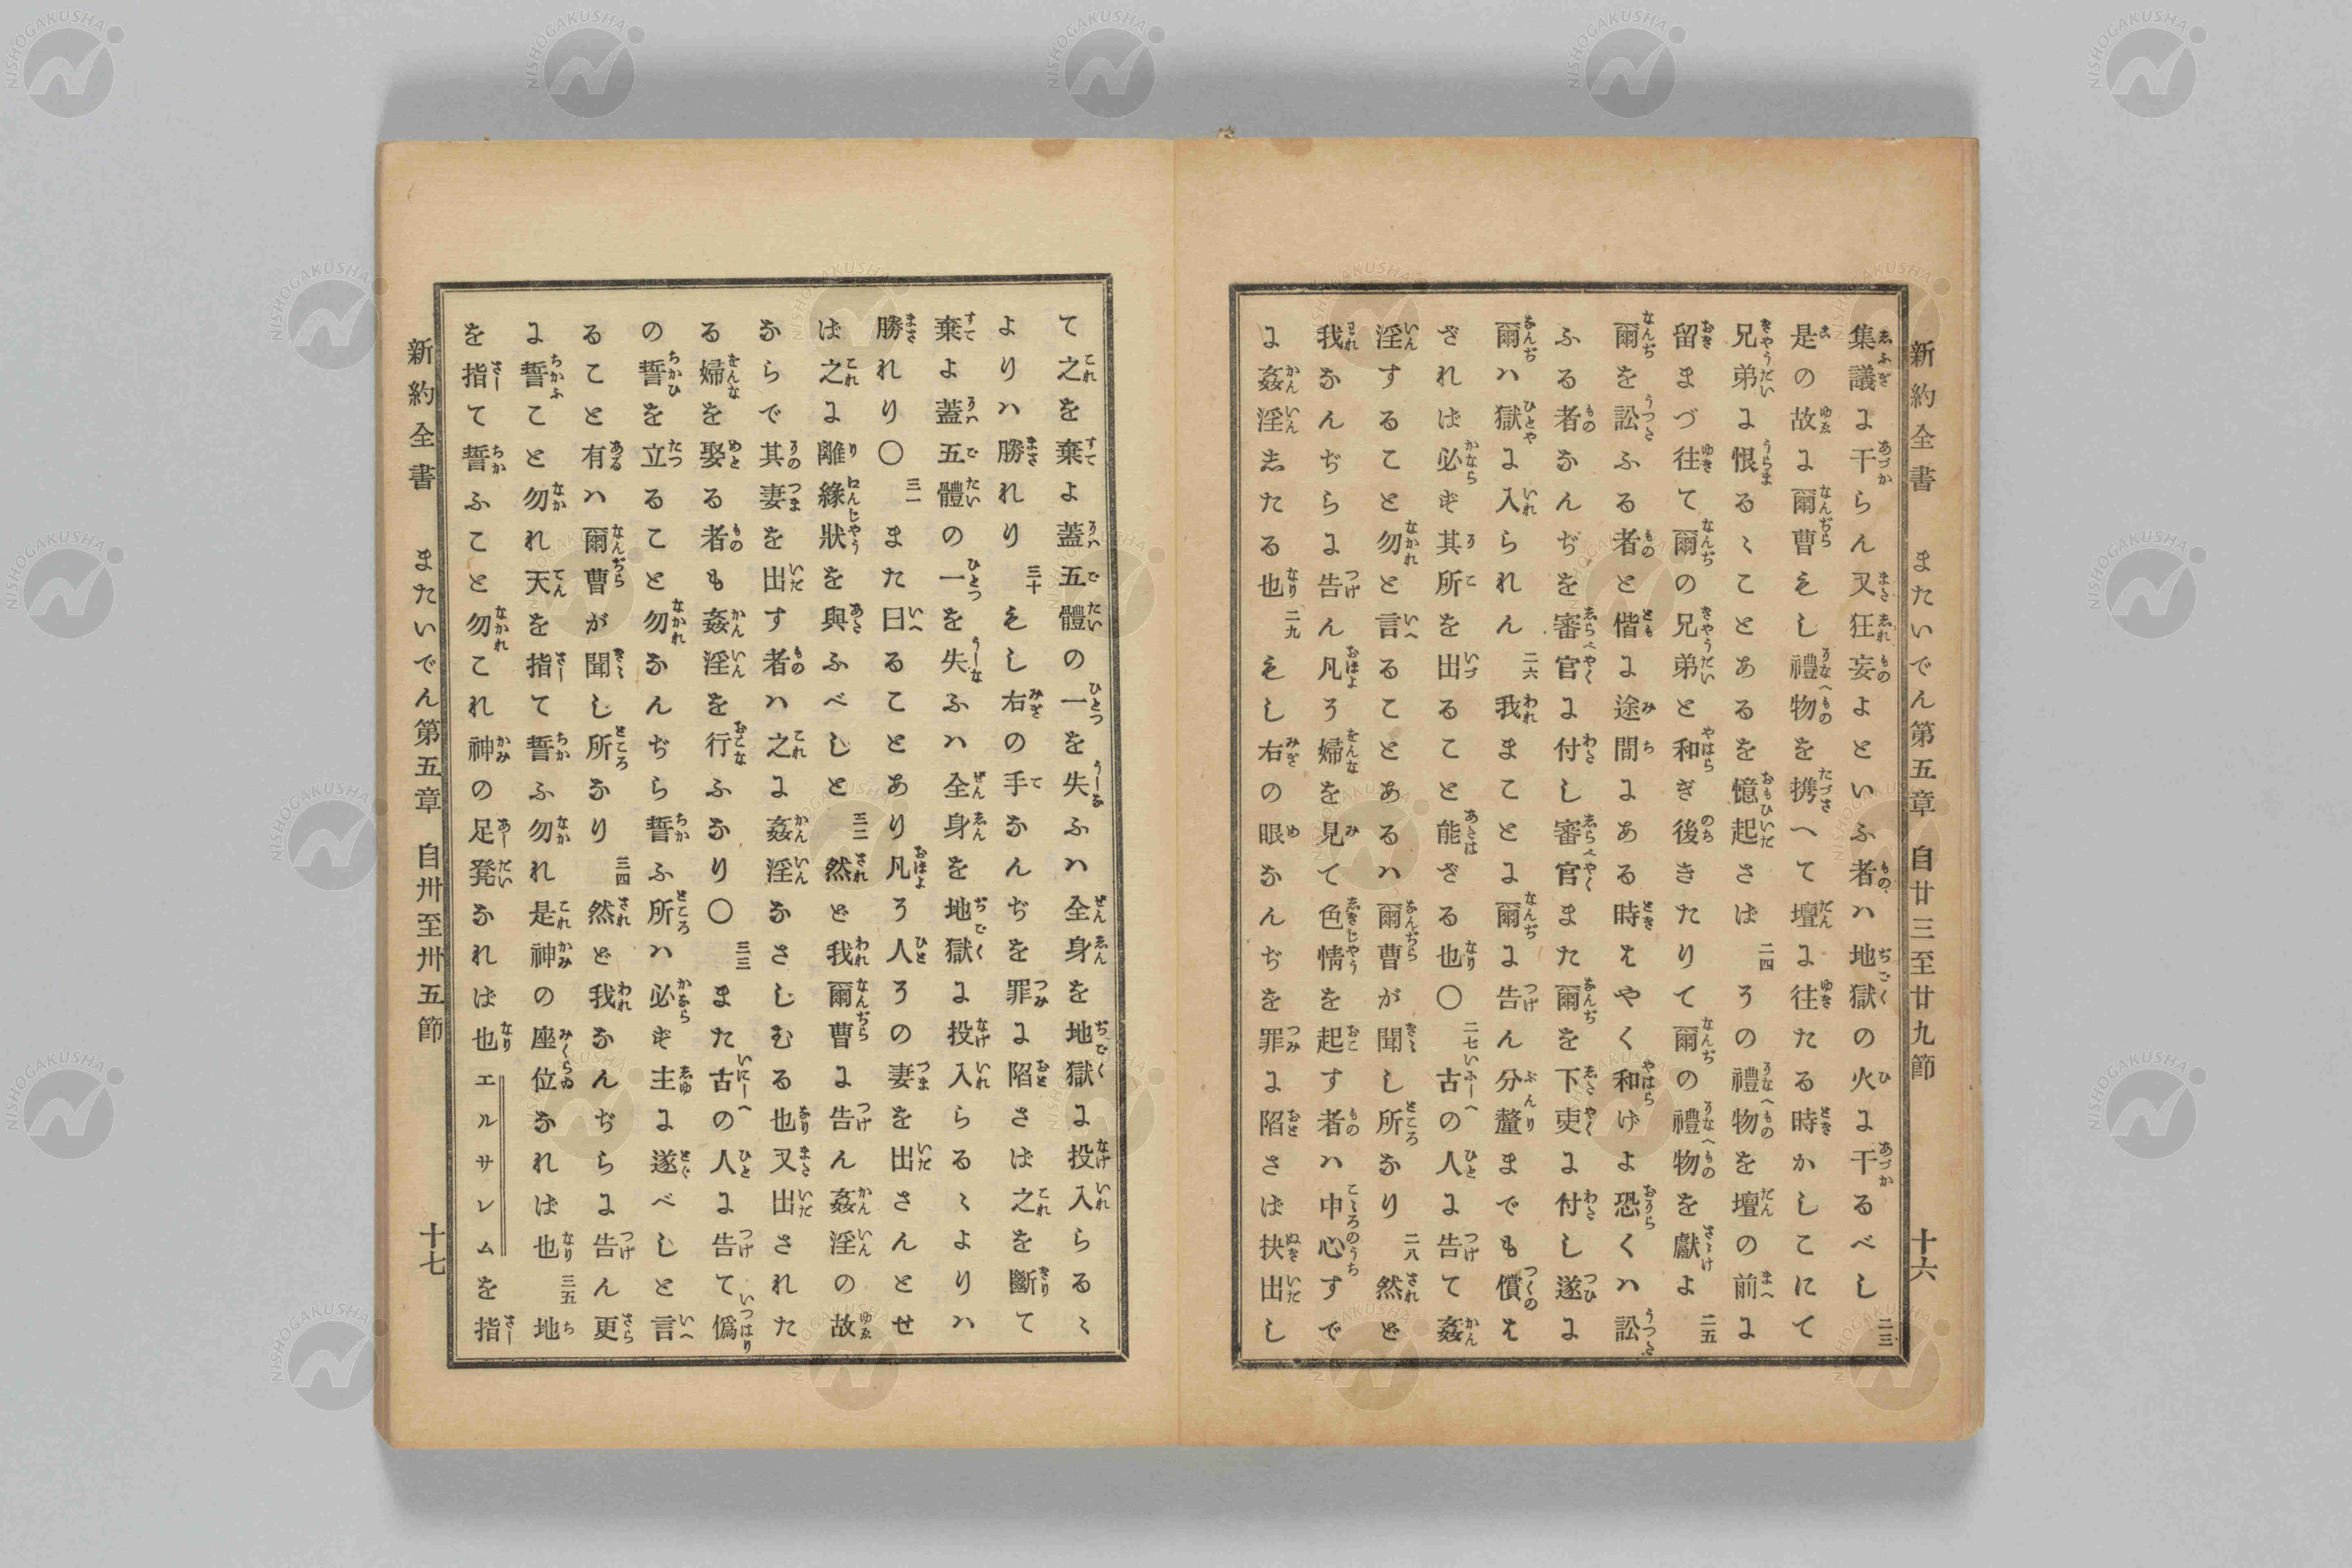 新約全書 またいでん第五章 自廿三至廿九節 十六
集議に干らん又狂妄よといふ者ハ地獄の火に干るべし二三
是の故に爾曹もし禮物を携へて壇に往たる時かしこにて
兄弟に恨るゝことあるを憶起さば二四その禮物を壇の前に
留まづ往て爾の兄弟と和ぎ後きたりて爾の禮物を獻よ二五
爾を訟ふる者と偕に途間にある時はやく和げよ恐くハ訟
ふる者なんぢを審官に付し審官また爾を下吏に付し遂に
爾ハ獄に入られん二六我まことに爾に告ん分釐までも償は
ざれば必ず其所を出ること能ざる也〇二七古の人に告て姦
淫すること勿と言ることあるハ爾曹が聞し所なり二八然ど
我なんぢらに告ん凡そ婦を見て色情を起す者ハ中心すで
に姦淫したる也二九もし右の眼なんぢを罪に陷さば抉出し
て之を棄よ蓋五體の一を失ふハ全身を地獄に投入らるゝ
よりハ勝れり三十もし右の手なんぢを罪に陷さば之を斷て
棄よ蓋五體の一を失ふハ全身を地獄に投入らるゝよりハ
勝れり〇三一また曰ることあり凡そ人その妻を出さんとせ
ば之に離緣狀を與ふべしと三二然ど我爾曹に告ん姦淫の故
ならで其妻を出す者ハ之に姦淫なさしむる也又出された
る婦を娶る者も姦淫を行ふなり〇三三また古の人に告て僞
の誓を立ること勿なんぢら誓ふ所ハ必ず主に遂べしと言
ること有ハ爾曹が聞し所なり三四然ど我なんぢらに告ん更
に誓ことと勿れ天を指て誓ふ勿れ是神の座位なれば也三五地
を指て誓ふこと勿これ神の足凳なれば也エルサレムを指
新約全書 またいでん第五章 自卅至卅五節 十七